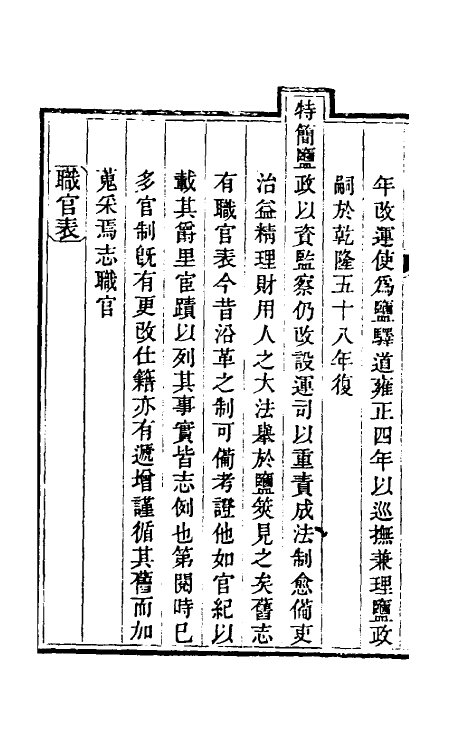 年改運使為鹽驛道雍正四年以巡撫兼理鹽政
嗣於乾隆五十八年復
特簡鹽政以資監察仍改設運司以重責成法制愈備吏
治益精理財用人之大法舉於鹽筴見之矣舊志
有職官表今昔沿革之制可備考證他如官紀以
載其爵里宦蹟以列其事實皆志例也第閱時已
多官制旣有更改仕籍亦有遞增謹循其舊而加
蒐采焉志職官
職官表